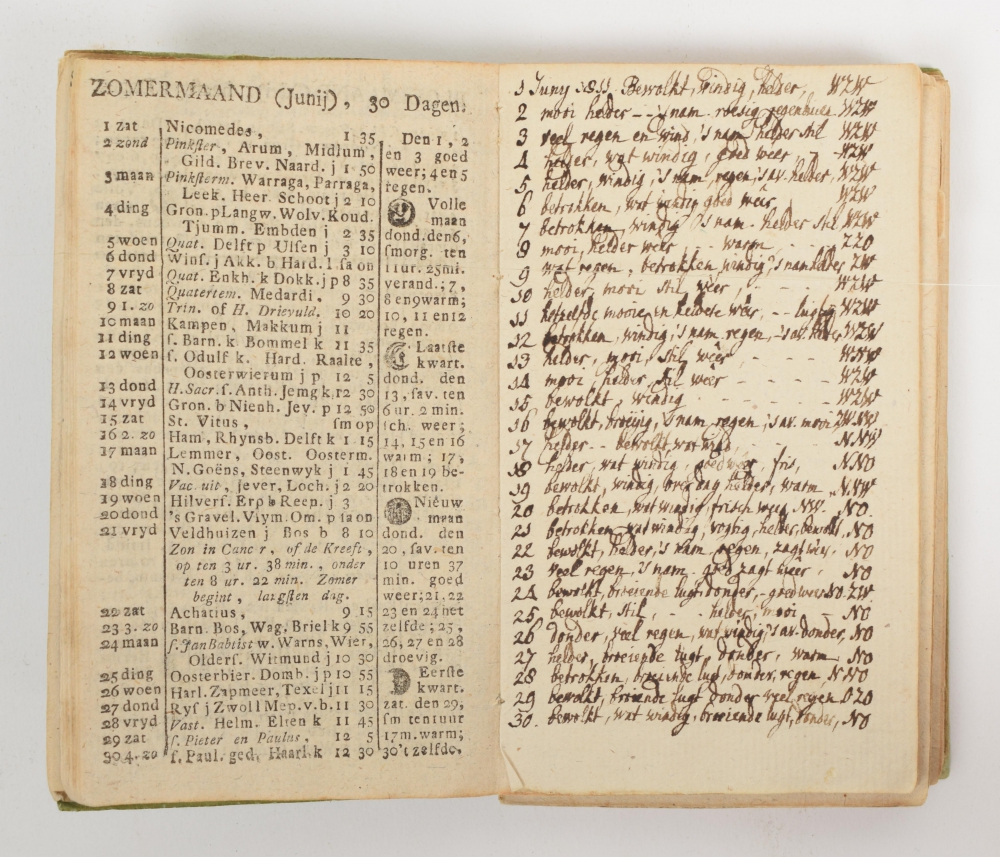 ZOMERMAAND (Junij), 30 Dagen.
1 zat Nicomedes, 1 35
2 zond Pinkster, Arum, Midlum,
Gild. Brev. Naard. j 1 50
3 maan Pinksterm. Warraga, Parraga,
Leek. Heer. Schoot j 2 10
4 ding Gron. p Langw. Wolv. Koud.
Tjumm. Embden j 2 35
5 woen Quat. Delft p Ulsen j 3 10
6 dond Wins. j Akk. b Hard. l sa on
7 vryd Quat. Enkh. k Dokk. j p 8 35
8 zat Quatertem. Medardi, 9 30
9 1. zo Trin. of H. Drievuld. 10 20
10 maan Kampen, Makkum j 11
11 ding s. Barn. k Bommel k 11 35
12 woen s. Odulf k. Hard. Raalte,
Oosterwierum j p 12 5
13 dond H. Sacr. s. Anth. Jemg k, 12 30
14 vryd Gron. b Nienh. Jev. p 12 50
15 zat St. Vitus, sm op
16 2. zo Ham, Rhynsb. Delft k 1 15
17 maan Lemmer, Oost. Oosterm.
N. Goëns, Steenwyk j 1 45
18 ding Vac. uit, Jever, Loch. j 2 20
19 woen Hilvers. Erp b Reen. j 3
20 dond 's Gravel. Vlym. Om. p la on
21 vryd Veldhuizen j Bos b 8 10
Zon in Cancer, of de Kreeft,
op ten 3 ur. 38 min., onder
ten 8 ur. 22 min. Zomer
begint, langsten dag.
22 zat Achatius, 9 15
23 3. zo Barn. Bos, Wag. Briel k 9 55
24 maan s. Jan Babtist w. Warns, Wier,
Olders. Witmund j 10 30
25 ding Oosterbier. Domb. j p 10 55
26 woen Harl. Zapmeer, Texel j 11 15
27 dond Rys j Zwoll Mep. v. b. 11 30
28 vryd Vast. Helm. Elten k 11 45
29 zat s. Pieter en Paulus, 12 5
30 4. zo s. Paul. ged. Haarl. k 12 30
Den 1, 2
en 3 goed
weer; 4 en 5
regen.
Volle
maan
dond. den 6,
smorg. ten
11 ur. 25 mi.
verand.; 7,
8 en 9 warm;
10, 11 en 12
regen.
Laatste
kwart.
dond. den
13, sav. ten
6 ur. 2 min.
sch. weer;
14, 15 en 16
warm; 17,
18 en 19 be-
trokken.
Nieuw
maan
dond. den
20, sav. ten
10 uren 37
min. goed
weer; 21, 22
23 en 24 het
zelfde; 25,
26, 27 en 28
droevig.
Eerste
kwart.
zat. den 29,
sm ten 1 uur
17 m. warm;
30 't zelfde.
1 Juny 1811. Bewolkt, windig, helder, WZW
2 mooi helder -- 's nam. roesig regenbuien WZW
3 veel regen en wind, 's nam. helder stil WZW
4 helder, wat windig, goed weer, - WZW
5 helder, windig, 's nam. regen, 's av. helder, WZW
6 betrokken, wat windig goed weêr, WZW
7 betrokken, windig 's nam. helder stil WZW
8 mooi, helder weêr - - warm, ZZO
9 wat regen, betrokken, windig, 's nam. helder ZW
10 helder, mooi stil weêr, WZW
11 hetzelfde mooie en heldere weêr, -- lugtig WZW
12 betrokken, windig, 's nam. regen, 's av. WZW
13 helder, mooi, stil weêr, - - - WNW
14 mooi, helder, stil weêr - - - WZW
15 bewolkt, windig - - - WZW
16 bewolkt, broeijig, 's nam. regen, 's av. mooi
17 helder -- bewolkt, wat wind, NNW
18 helder, wat windig, goed weêr, fris, NNO
19 bewolkt, windig, helder, warm NNW
20 betrokken, wat windig, frisch weer, NW. NO
21 betrokken, wat windig, helder, NO
22 bewolkt, helder, 's nam. regen, zagt weêr. NO
23 veel regen, 's nam. goed zagt weêr. NO
24 bewolkt, broeiende lugt, donder, - goed weer NO. ZW
25 bewolkt, stil, . helder, mooi NO
26 donder, veel regen, wat windig, 's av. donder, NO
27 helder, broeiende lugt, donder, warm. NO
28 betrokken, broeiende lugt, donder, regen NNO
29 bewolkt, broeiende lugt donder veel regen OZO
30. bewolkt, wat windig, broeiende lugt, donder, NO